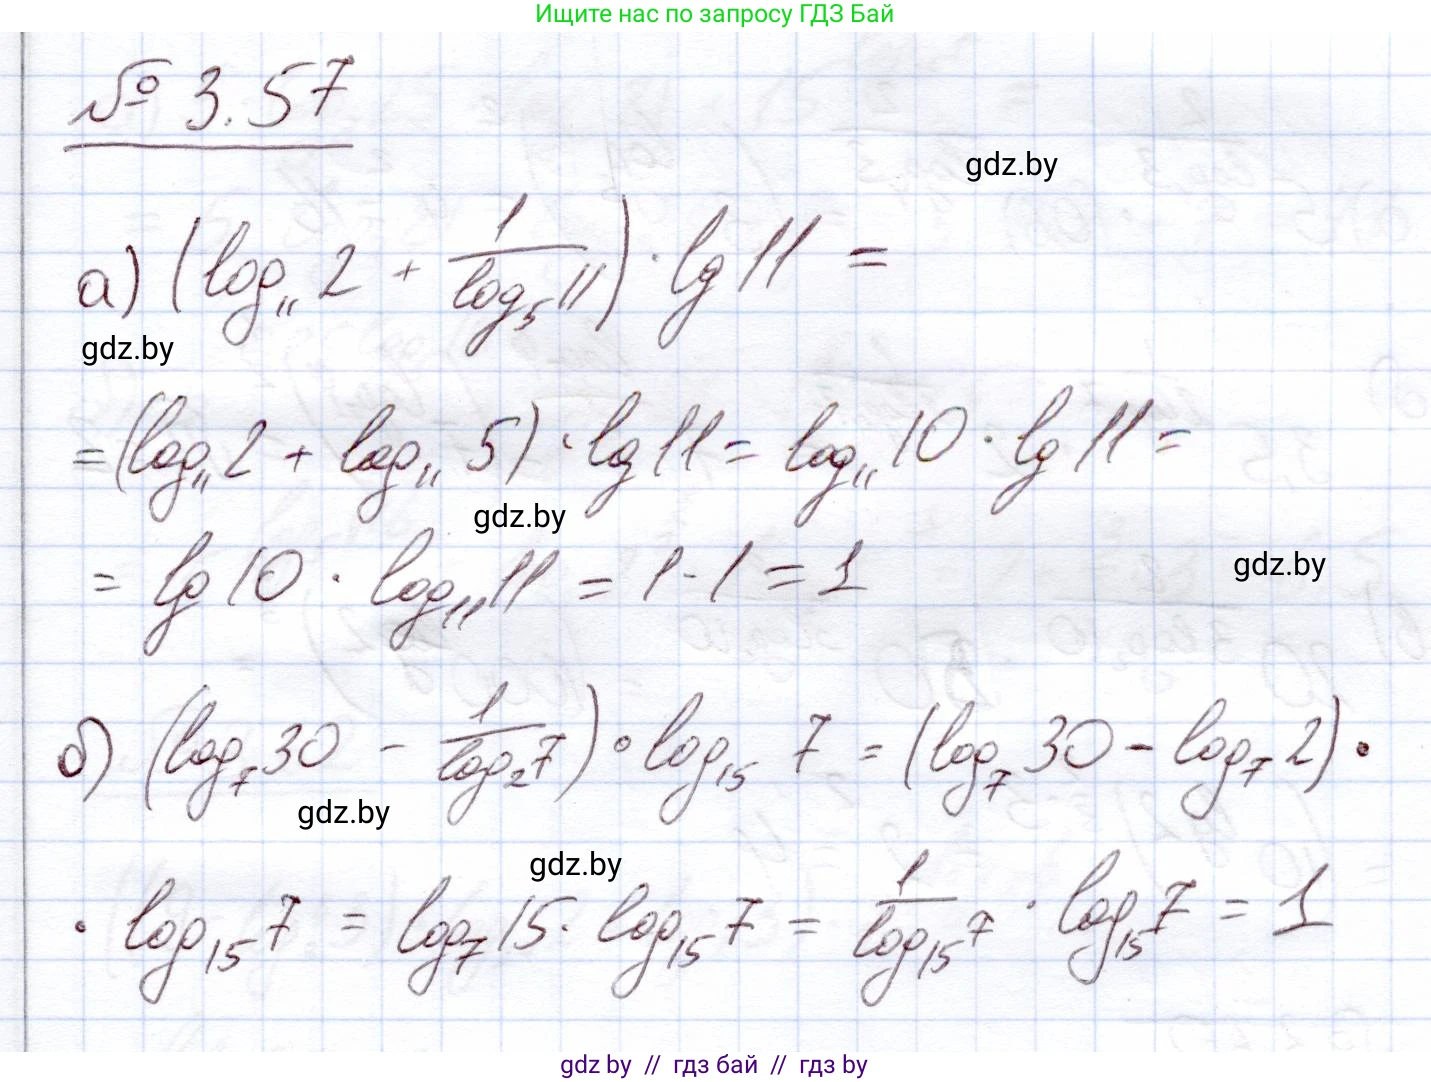 Ищите нас по запросу ГДЗ Бай
№ 3.57
gdz.by
а) (log₁₁ 2 + 1/log₅ 11) · lg 11 =
gdz.by
= (log₁₁ 2 + log₁₁ 5) · lg 11 = log₁₁ 10 · lg 11 =
gdz.by
= lg 10 · log₁₁ 11 = 1 · 1 = 1
gdz.by
б) (log₇ 30 - 1/log₂ 7) · log₁₅ 7 = (log₇ 30 - log₇ 2) ·
gdz.by
gdz.by
· log₁₅ 7 = log₇ 15 · log₁₅ 7 = 1/log₁₅ 7 · log₁₅ 7 = 1
gdz by // гдз бай // гдз by